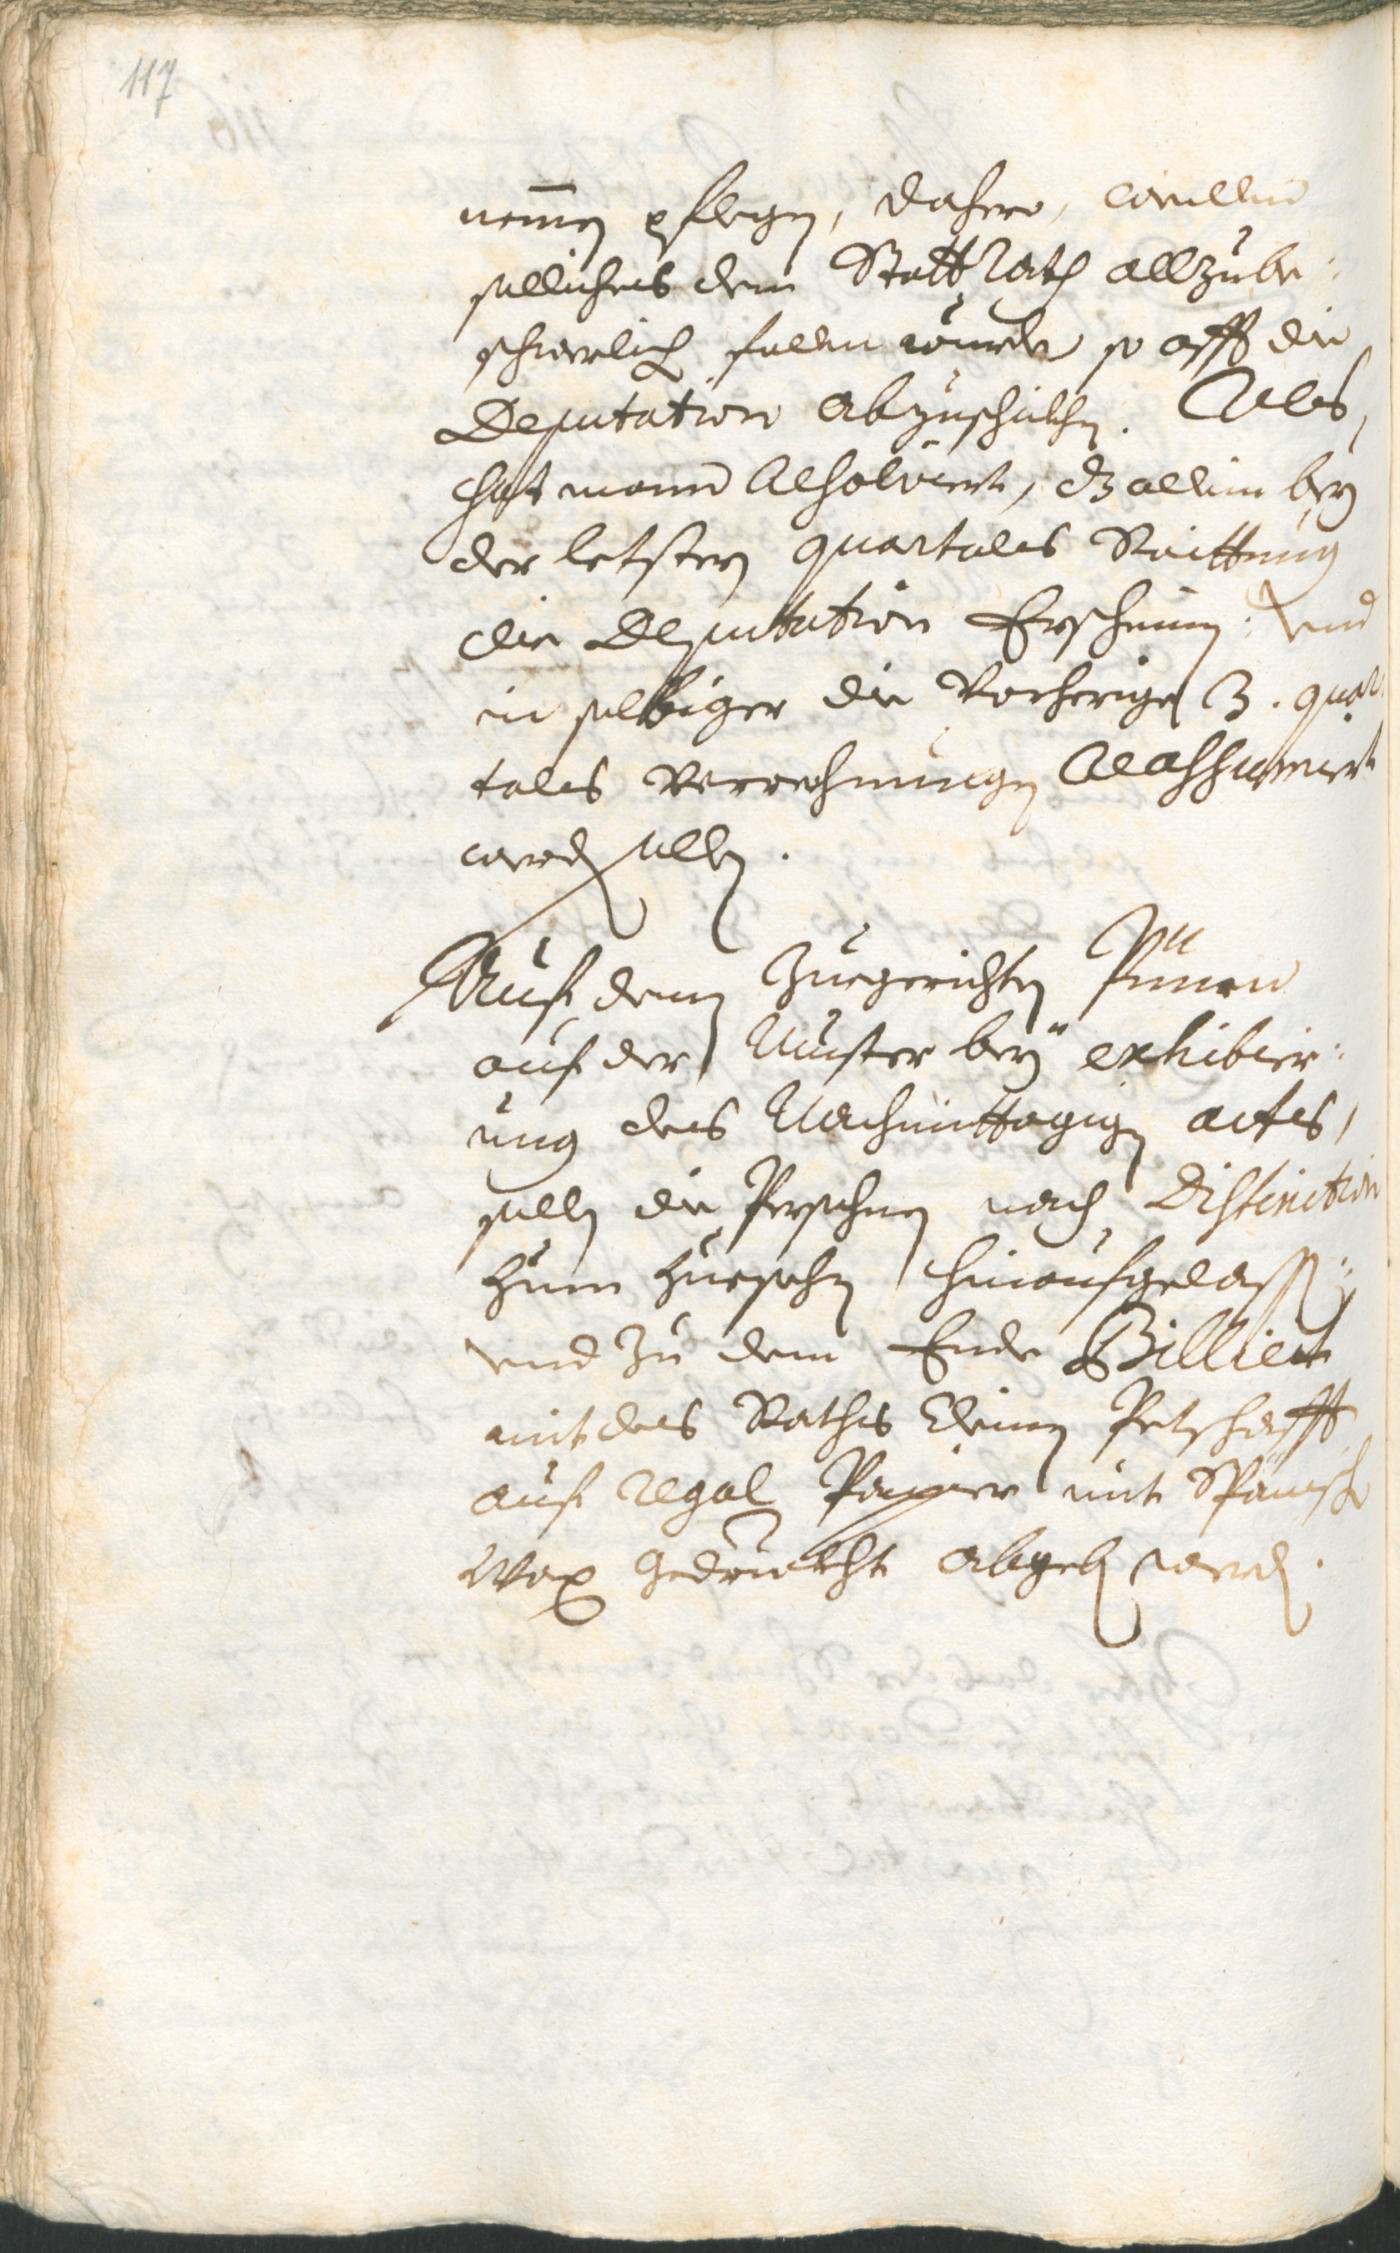 117
nemen pflegen, dahero, weillen
sellichs dem Statt Rath allzube:
schwerlich fallen wurde so offt die
Deputation abzuschickhen. Als,
hat mann Resolviert, dz allein bey
der letsten quartals Raittung
die Deputation Erscheinen: und
in selbiger die vorherige 3. quar
tals verrechnungen Reassumiert
werden sollen.
Auf denen zuegerichten Pinen
auf der Muster bey exhibier:
ung des Nachmittagigen actes,
sollen die Persohnen nach Distinction
zum zuesehen hinaufgelassen:
und zu dem Ende Billiet
mit des Raths kleinen Petschafft
auf regal Papier mit Spänisch
Wax gedruckht abgeben werden.